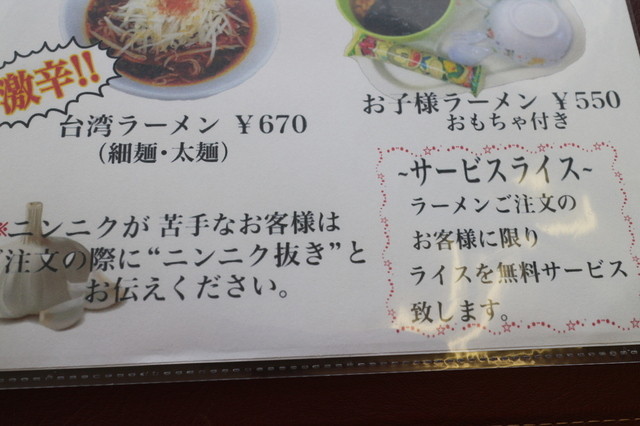 激辛!!
台湾ラーメン ￥670
(細麺・太麺)
お子様ラーメン ￥550
おもちゃ付き
※ニンニクが 苦手なお客様は
ご注文の際に“ニンニク抜き”と
お伝えください。
~サービスライス~
ラーメンご注文の
お客様に限り
ライスを無料サービス
致します。